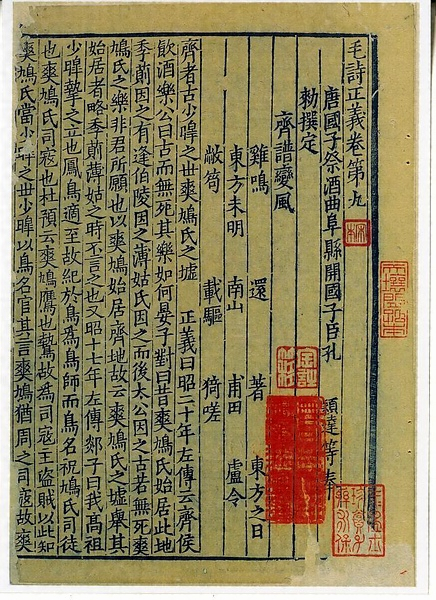 毛詩正義卷第九
唐國子祭酒曲阜縣開國子臣孔 穎達等奉
勑撰定
齊譜變風
雞鳴 還 著 東方之日
東方未明 南山 甫田 盧令
敝笱 載驅 猗嗟
齊者古少皥之世爽鳩氏之墟 正義曰昭二十年左傳云齊侯
飲酒樂公曰古而無死其樂如何晏子對曰昔爽鳩氏始居此地
季萴因之有逢伯陵因之薄姑氏因之而後太公因之古若無死爽
鳩氏之樂非君所願也以爽鳩始居齊地故云爽鳩氏之墟舉其
始居者略季萴薄姑之時不言之也又昭十七年左傳郯子曰我髙祖
少皥摯之立也鳳鳥適至故紀於鳥為鳥師而鳥名祝鳩氏司徒
也爽鳩氏司寇也杜預云爽鳩鷹也鷙故為司寇主盜賊以此知
爽鳩氏當少皥之世以鳥名官其言爽鳩猶周之司寇故爽